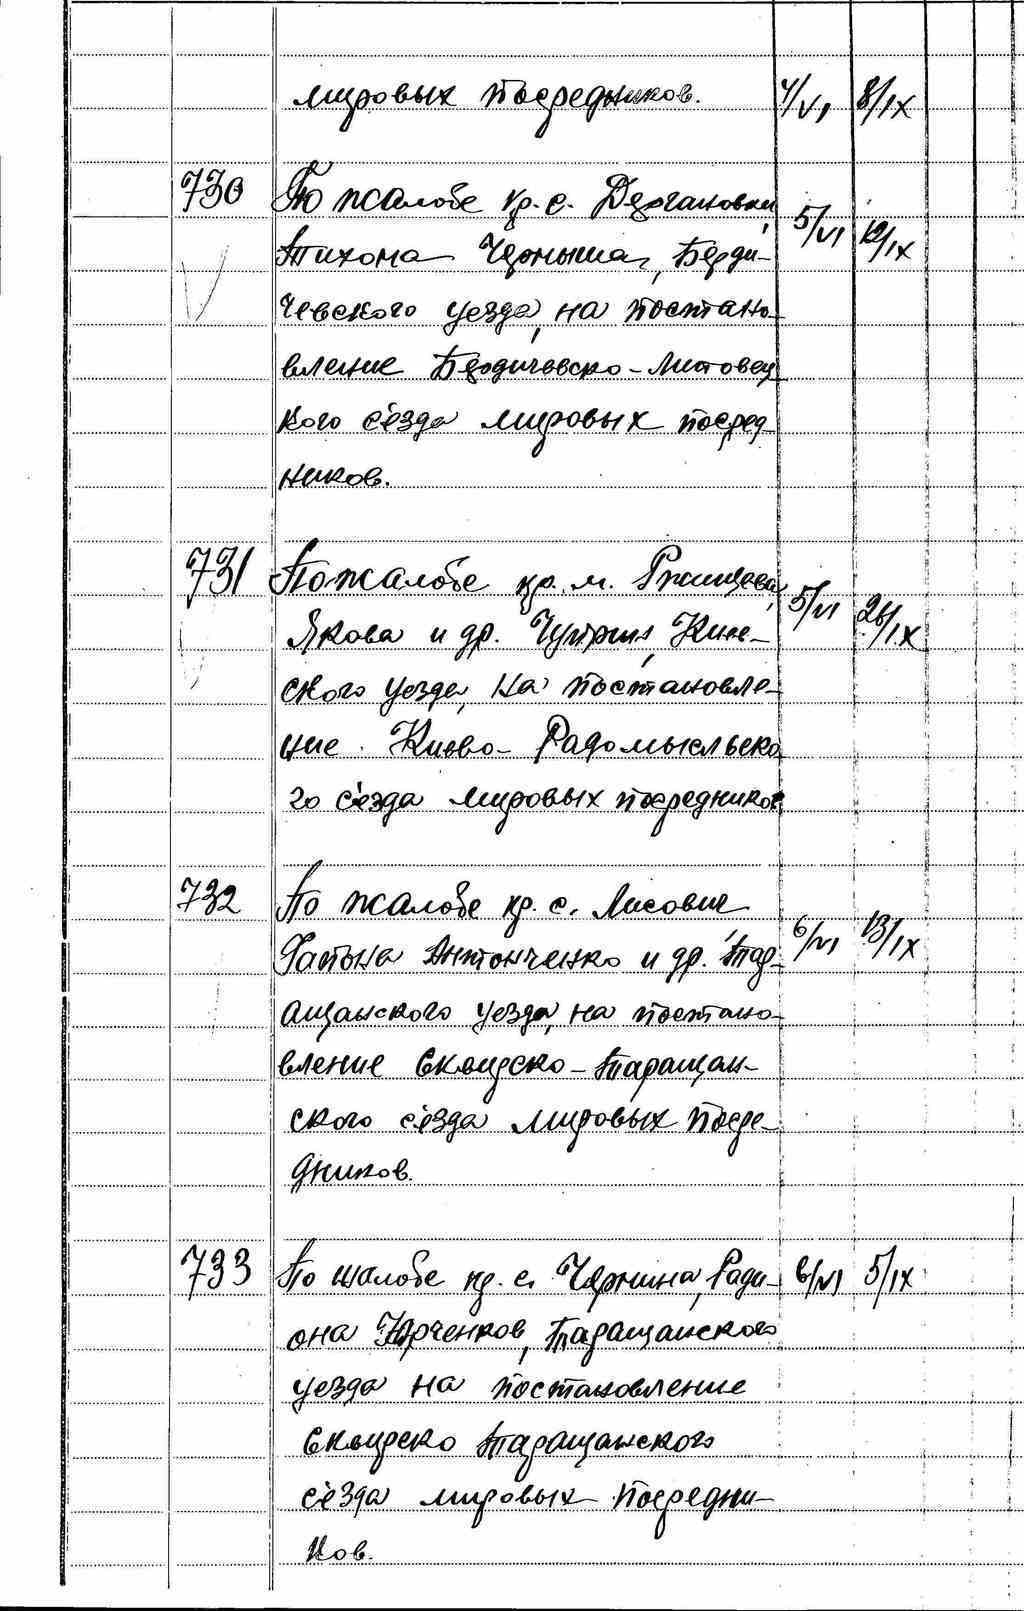 мировых посредников. 4/VI 8/IX
730 По жалобе кр. с. Дергановки, 5/VI 12/IX
Тихона Черныша, Берди-
чевского уезда, на постано-
вление Бердичевско-Липовец
кого съезда мировых посред-
ников.
731 По жалобе кр. м. Ржищева, 5/VI 26/IX
Якова и др. Киев-
ского уезда, на постановле-
ние Киево-Радомысльско
го съезда мировых посредников
732 По жалобе кр. с. Лисовие 6/VI 13/IX
Антонченко и др. Тар-
ащанского уезда, на постано-
вление Сквирско-Таращан-
ского съезда мировых посре-
дников.
733 По жалобе кр. с. Чернина, Роди- 6/VI 5/IX
она Юрченков, Таращанского
уезда на постановление
Сквирско Таращанского
съезда мировых посредни-
ков.